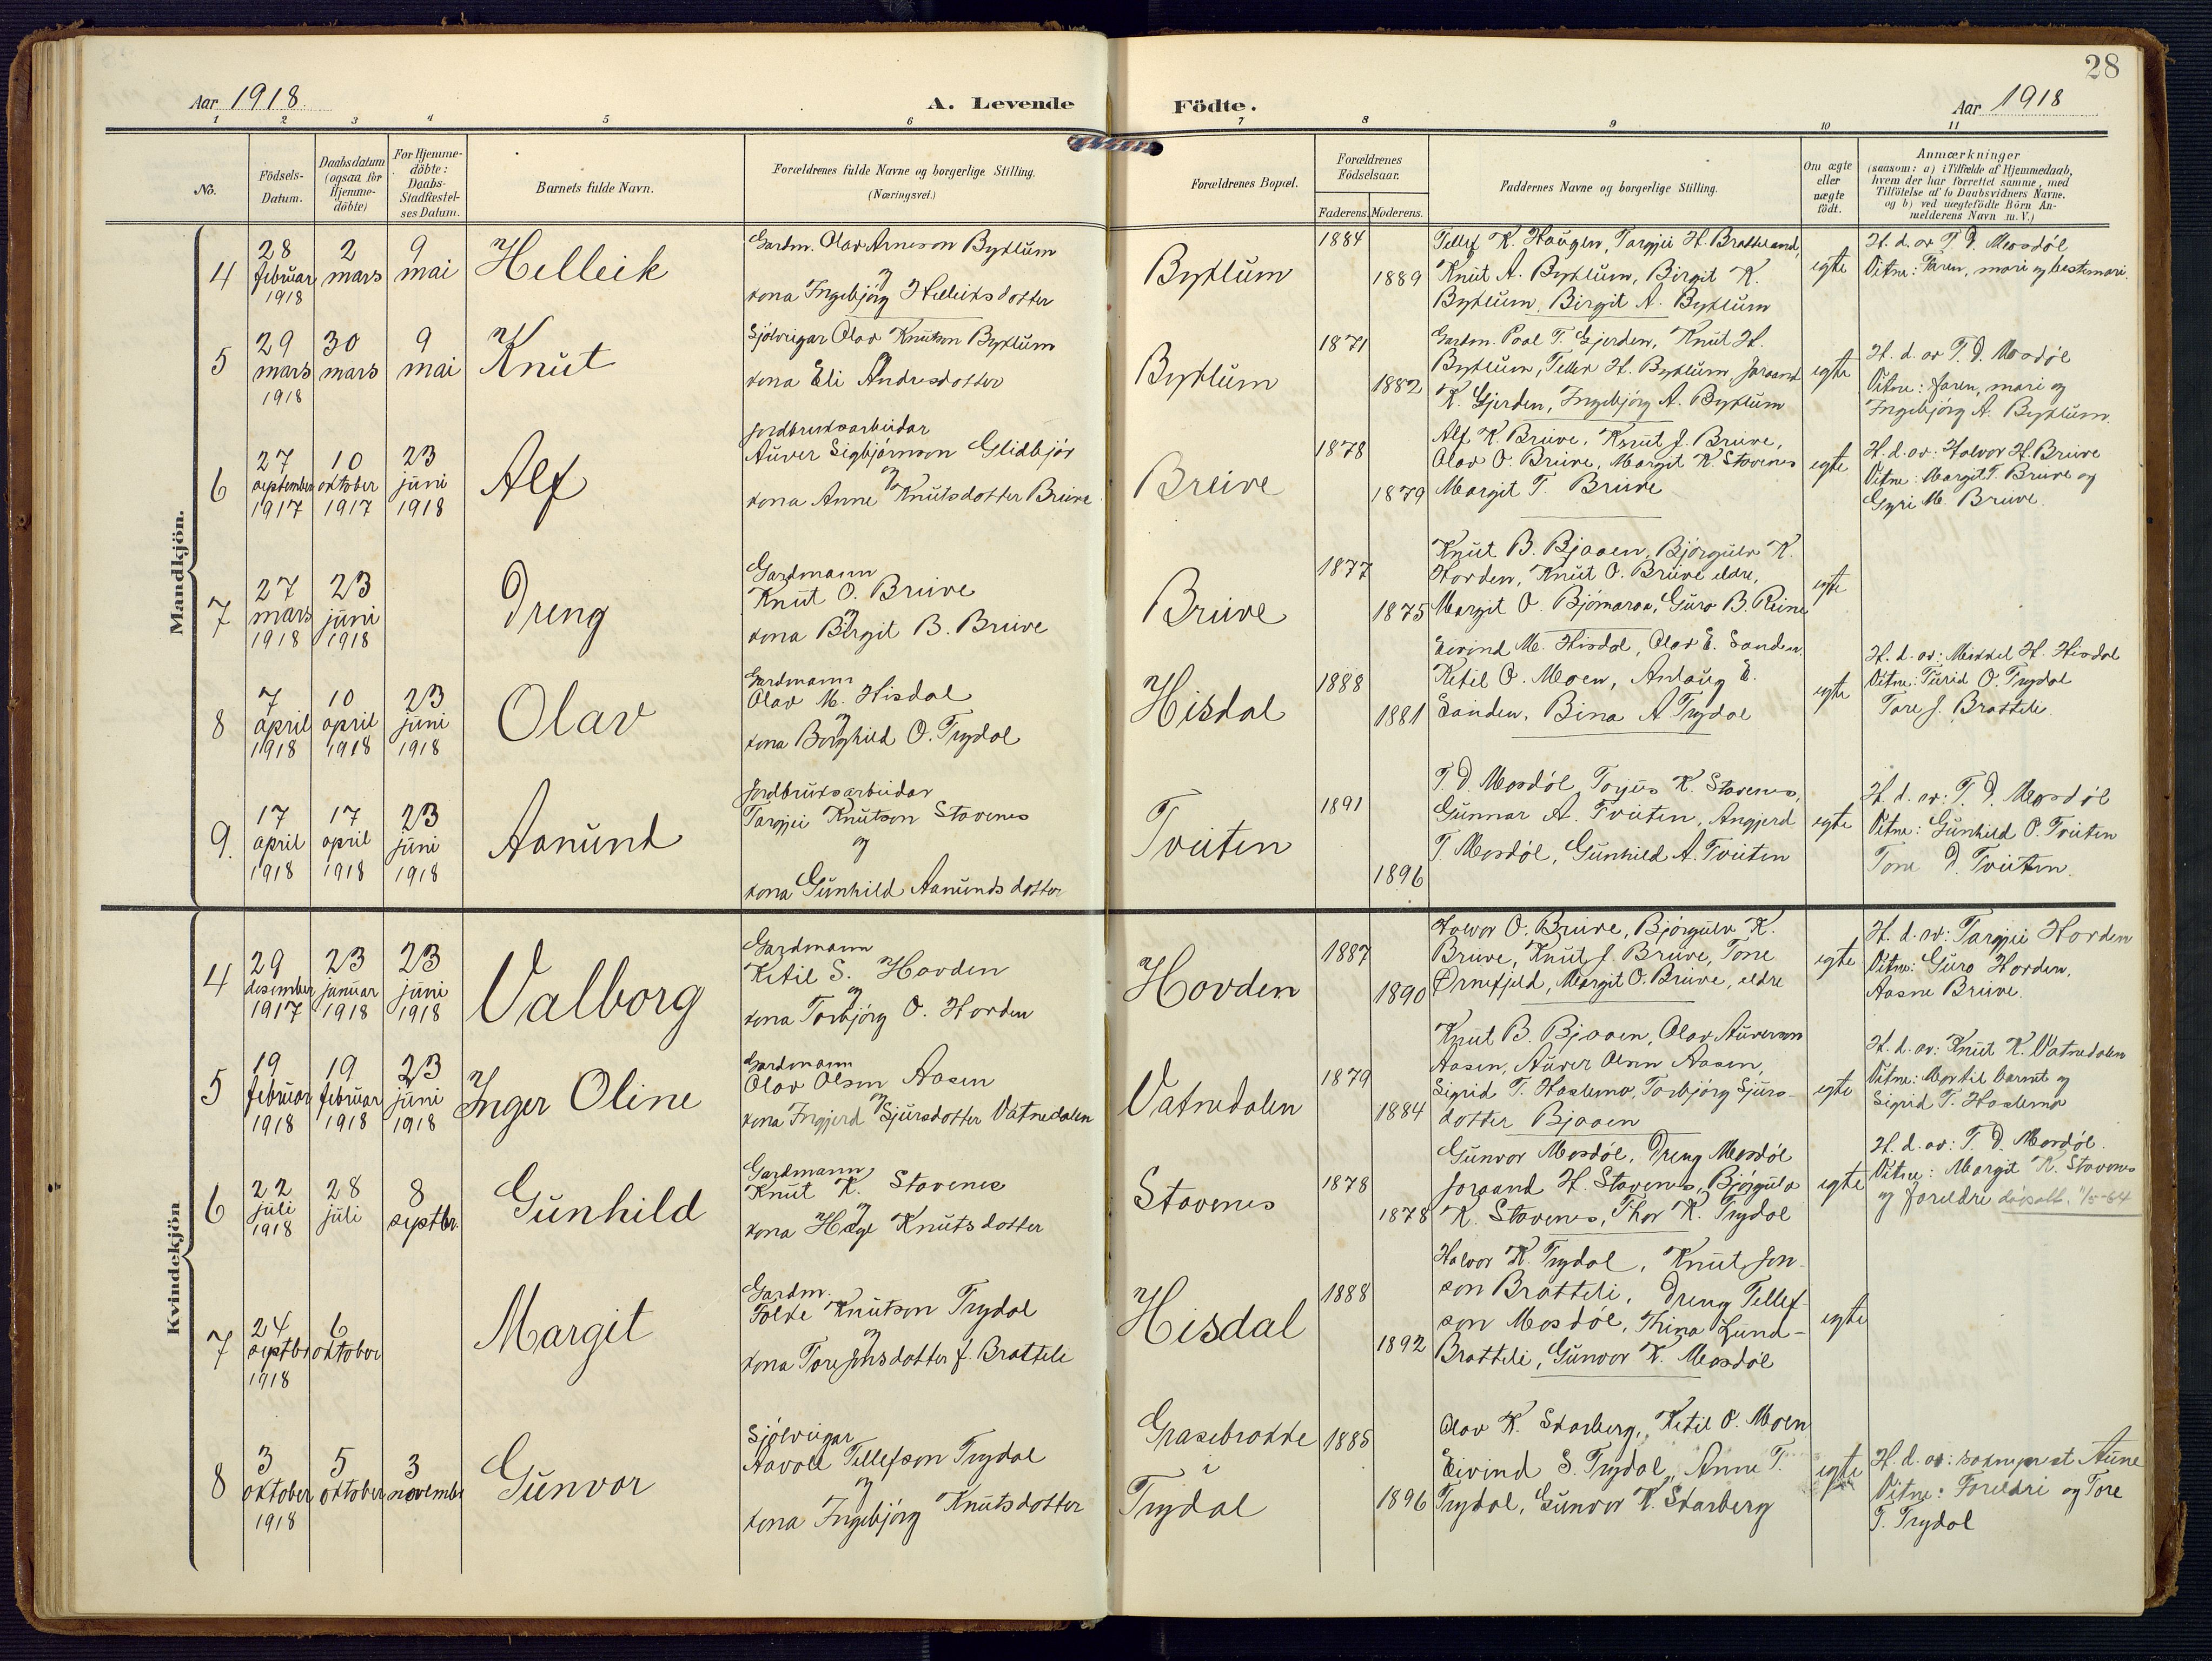 28
Aar 1918.
A. Levende
Födte.
Aar 1918
1 2 3 4 5 6 7 8 9 10 11
No.
Födsels-
Datum.
Daabsdatum
(ogsaa för
Hjemme-
döbte)
For Hjemme-
döbte:
Daabs-
Stadfæstel-
ses Datum.
Barnets fulde Navn.
Forældrenes fulde Navne og borgerlige Stilling.
(Næringsvei.)
Forældrenes Bopæl.
Forældrenes
Födselsaar.
Faderens. Moderens.
Faddernes Navne og borgerlige Stilling.
Om ægte
eller
uægte
födt.
Anmærkninger
(saasom: a) i Tilfælde af Hjemmedaab,
hvem der har forrettet samme, med
Tilföielse af to Daabsvidners Navne.
og b) ved uægtefödte Börn An-
melderens Navn m. V.)
Mandkjön.
4
28
februar
1918
2
mars
9
mai
Helleik
Gardm. Olav Arneson Byklum
og
kona Ingebjörg Helleiksdotter
Byklum
1884
1889
Tellef K. Haugen, Targjei H. Bratteland,
Knut A. Byklum, Birgit K.
Byklum, Birgit A. Byklum
egte
H. d. av T. D. Mosdöl
Vitne: Faren, mori og bestemori.
5
29
mars
1918
30
mars
9
mai
Knut
Sjölveigar Olav Knutson Byklum
og
kona Eli Andresdotter
Byklum
1871
1882
Gardm. Paal T. Gjerden, Knut H.
Byklum, Tellev H. Byklum, Joraand
K. Gjerden, Ingebjörg A. Byklum
egte
H. d. av T. D. Mosdöl
Vitne: faren, mori og
Ingebjörg A. Byklum.
6
27
september
1917
10
oktober
1917
23
juni
1918
Alf
Jordbruksarbeidar
Auver Sigbjörnson Glidbjör
og
kona Anne Knutsdotter Breive
Breive
1878
1879
Alf K. Breive, Knut J. Breive,
Olav O. Breive, Margit K. Stavenes
Margit T. Breive
egte
H. d. av: Halvor H. Breive
Vitne: Margit T. Breive og
Gyri M. Breive.
7
27
mars
1918
23
juni
1918
Dreng
Gardmann
Knut O. Breive
og
kona Birgit B. Breive
Breive
1877
1875
Knut B. Bjaaen, Björgulv K.
Hovden, Knut O. Breive eldre,
Margit O. Bjömaraa, Guro B. Reine
egte
8
7
april
1918
10
april
1918
23
juni
1918
Olav
Gardmann
Olav M. Hisdal
og
kona Borghild O. Trydal
Hisdal
1888
1881
Eivind M. Hisdal, Olav E. Sanden.
Ketil O. Moen, Anlaug E.
Sanden, Bina A Trydal
egte
H. d. av: Mikkel H. Hisdal
Vitne: Turid O. Trydal
Tore J. Bratteli.
9.
17
april
1918
17
april
1918
23
juni
1918
Aanund
Jordbruksarbeidar
Targjei Knutson Stavenes
og
kona Gunhild Aanundsdotter
Tveiten
1891
1896
T. D. Mosdöl, Torjus K. Stavenes,
Gunnar A. Tveiten, Angjerd
T. Mosdöl, Gunhild A. Tveiten
egte
H. d. av: T. D. Mosdöl
Vitne: Gunhild O. Tveiten
Tone D. Tveiten.
Kvindekjön
4
29
desember
1917
23
januar
1918
23
juni
1918
Valborg
Gardmann
Ketil S. Hovden
og
kona Torbjörg O. Hovden
Hovden
1887
1890
Halvor O. Breive, Björgulv K.
Breive, Knut J. Breive, Tone
Ørnefjeld, Margit O. Breive, eldre
egte
H. d. av: Targjei Hovden
Vitne: Guro Hovden,
Aasne Breive.
5
19
februar
1918
19
februar
1918
23
juni
1918
Inger Oline
Gardmann
Olav Olsen Aasen
og
kona Ingjerd Sjursdotter Vatnedalen
Vatnedalen
1879
1884
Knut B. Bjaaen, Olav Auverson
Aasen, Auver Olsen Aasen,
Sigrid T. Haslemo, Torbjörg Sjurs-
dotter Bjaaen
egte
H. d. av: Knut K. Vatnedalen
Vitne: Mor til barnet og
Sigrid T. Haslemo
6
22
juli
1918
28
juli
8
septbr.
Gunhild
Gardmann
Knut K. Stavenes
og
kona Hæge Knutsdotter
Stavenes
1878
1878
Gunvor Mosdöl, Dreng Mosdöl
Joraand H. Stavenes, Björgulv
K. Stavenes, Thor K. Trydal
egte
H. d. av: T. D. Mosdöl.
Vitne: Margit K. Stavenes
og foreldre
7
24
septbr
1918
6
oktober
Margit
Gardm.
Folke Knutson Trydal
og
kona Tore Jonsdotter f. Bratteli
Hisdal
1888
1892
Halvor K. Trydal, Knut Jon-
son Bratteli, Dreng Tellef-
son Mosdöl, Thina Lund-
Bratteli, Gunvor K. Mosdöl
egte
8
3
oktober
1918
5
oktober
3
novembr
Gunvor
Sjölveigar
Aavold Tellefson Trydal
og
kona Ingebjörg Knutsdotter
Grasebrokke
i
Trydal
1885
1896
Olav K. Skarberg, Ketil O. Moen
Eivind S. Trydal, Anne T.
Trydal, Gunvor K. Skarberg
egte
H. d. av: sokneprest Aune
Vitne: Foreldri og Tore
T. Trydal